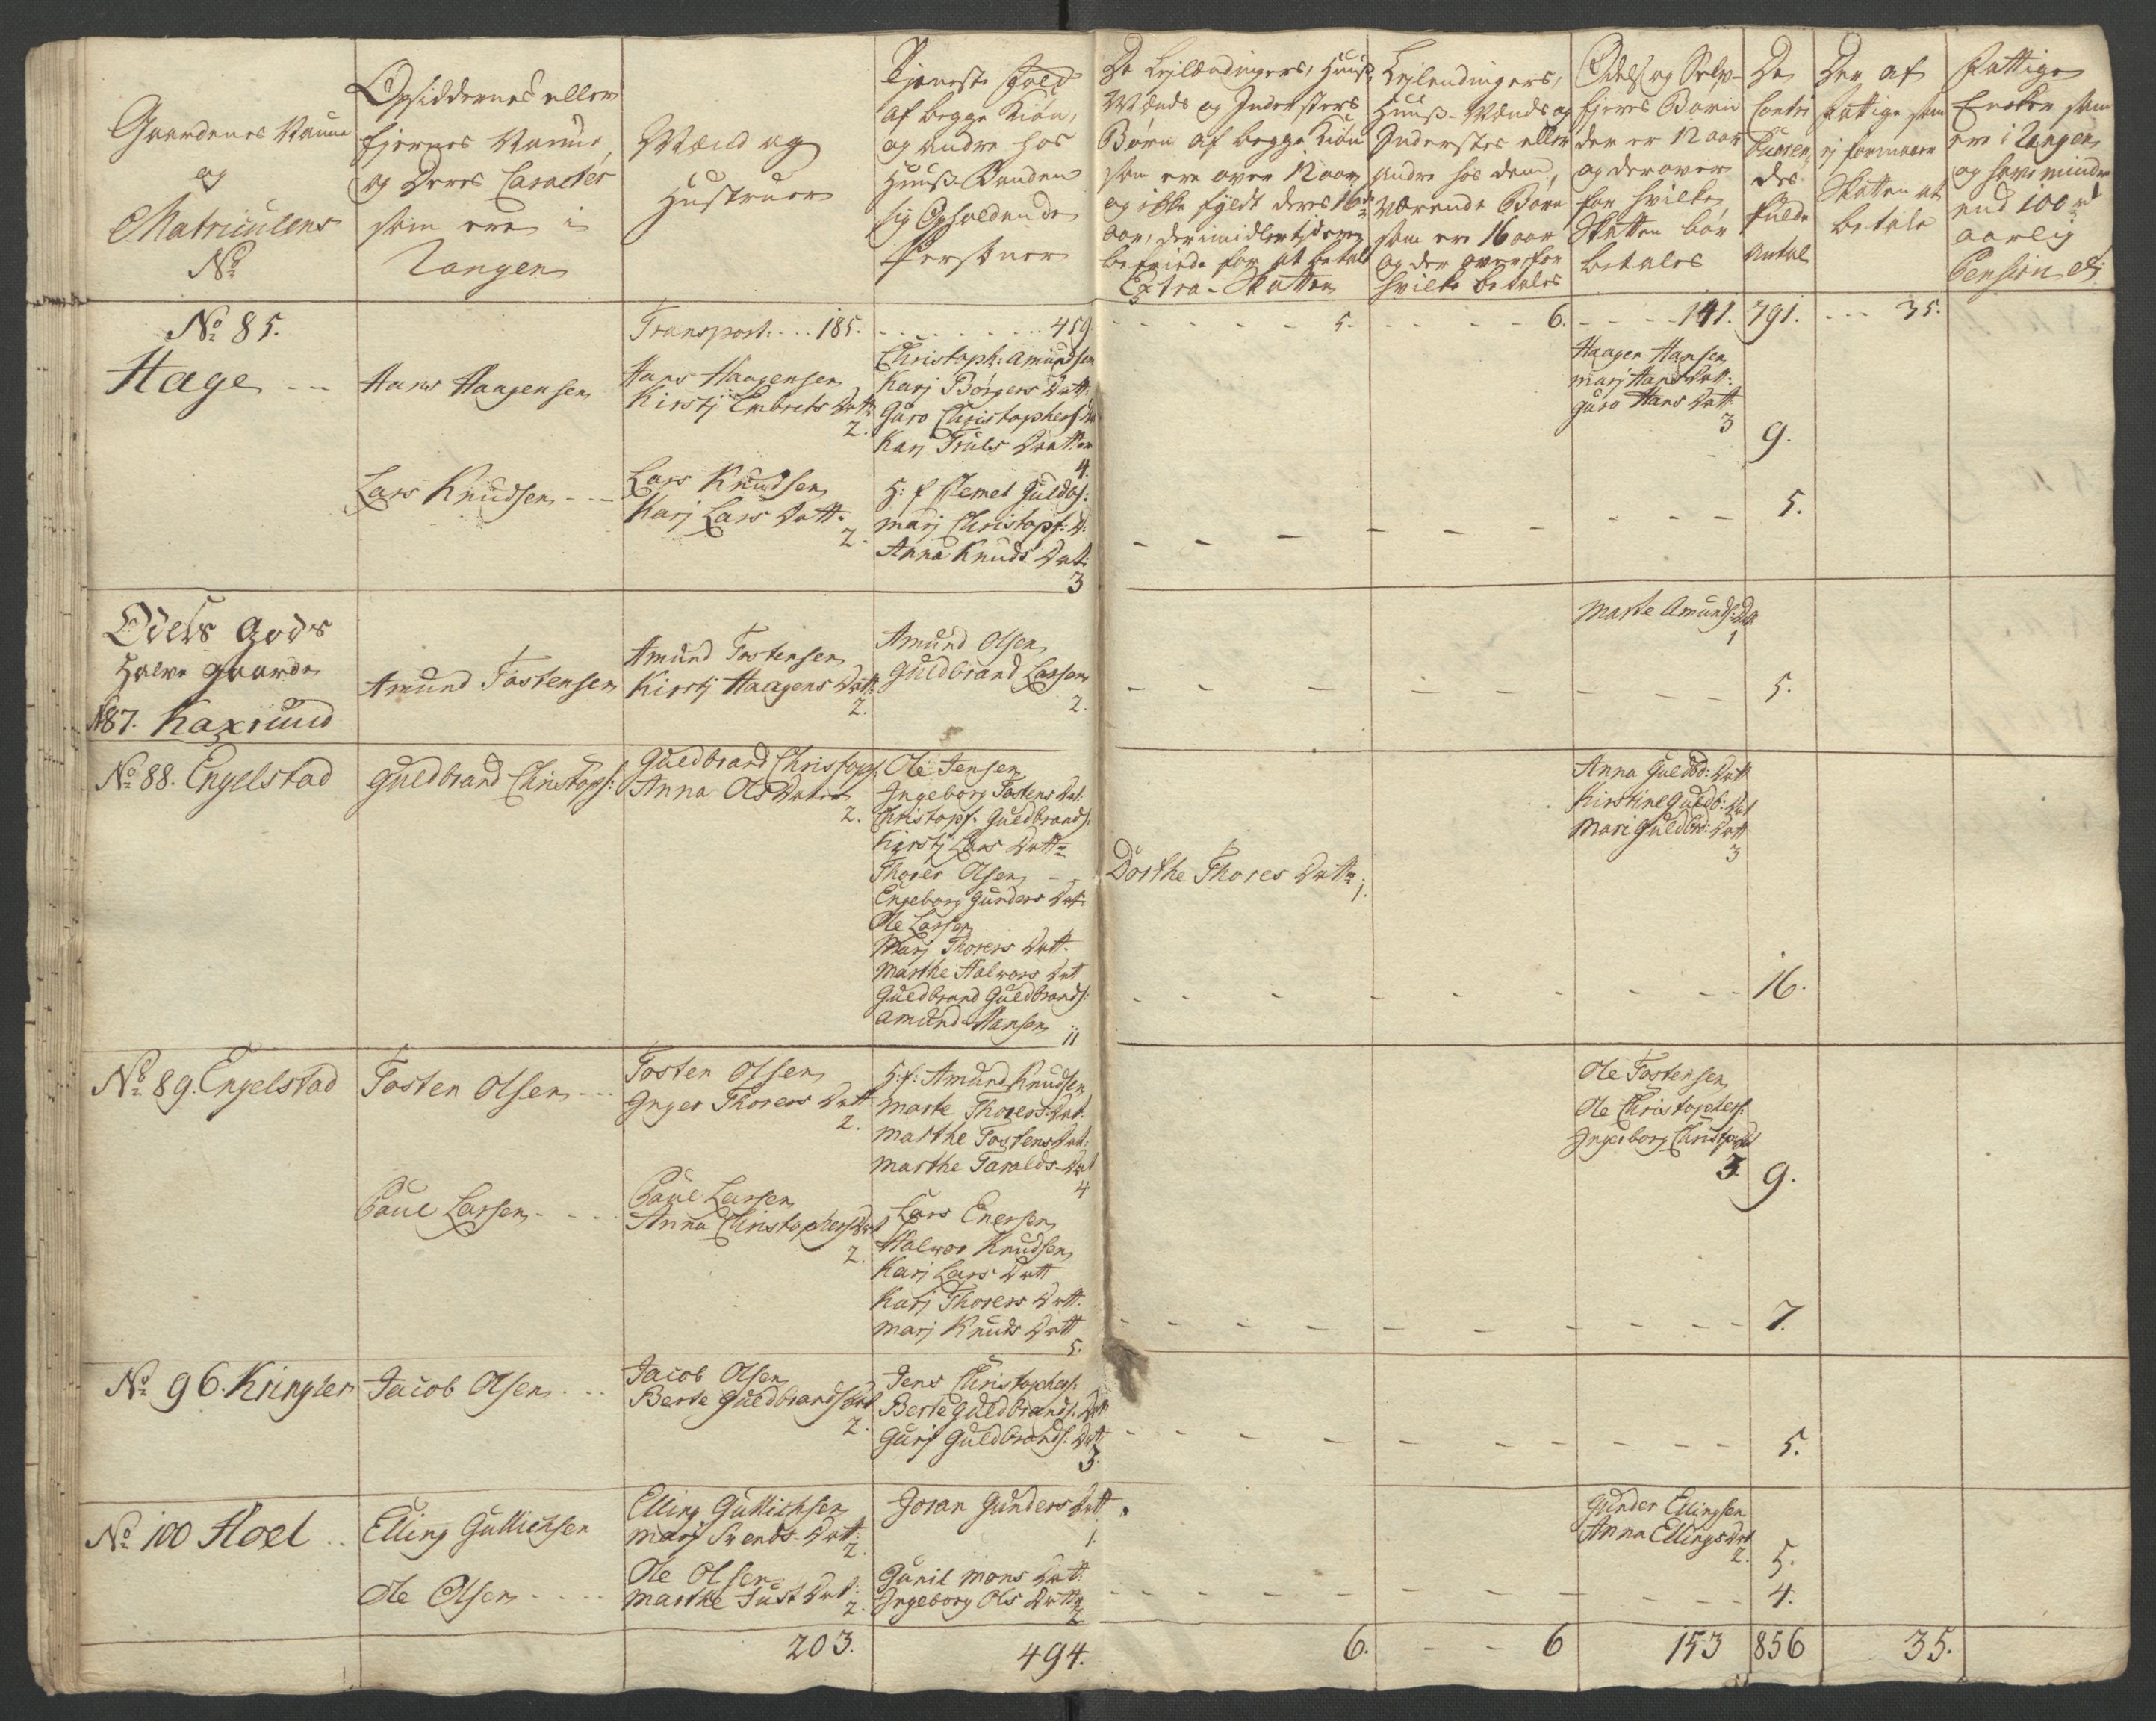 Gaardenes Nafne
og
Matriculens
No
Opsiddernes eller
Ejernes Nafne,
og Deres Caracter
som ere i
Rangen
Mænd og
Hustruer
Tjeneste Folk
af begge Kiøn,
og andre hos
Huus-Bonden
sig Opholdende
Persohner
De Lejlændingers, Huus-
Mænds og Indersters
Børn af begge Kiøn
som ere over 12 aar
og ikke fyldt deres 16de
aar, der imidlertid ere
befriede for at betale
Extra-Skatten
Lejlendingers,
Huus-Mænds og
Inderstes eller
andre hos dem,
værende Børn
som ere 16 aar
og der over for
hvilke betales
Odels og Selv-
Ejeres Børn
der er 12 aar
og derover
for hvilke
Skatten bør
betales
De
Contri
bueren
des
fulde
Antal
Der af
fattige som
ej formaaer
Skatten at
betale
Fattige
Encker som
ere i Rangen
og have mindre
end 100 rd
aarlig
Pension
No 85.
Transport: ... 185. ... 459. 5. 6. 141. 791. 35.
Hage
Hans Haagensen
Hans Haagensen
Kirstj Embrets Datt:
2.
Christoph: Amundsen
Karj Børgers Datt:
Guro Christophers Da
Karj Truls Datter
4.
Haagen Hansen
marj Hans Datt:
guro Hans Datt:
3
9.
Lars Knudsen
Lars Knudsen
Karj Lars Datt:
2.
H: f Clemet Guldb:
marj Christoph: D:
Anna Knuds Dat:
3
5.
Odels Gods
Halve gaarde
No 87. Kaxrud
Amund Tostensen
Amund Tostensen
Kirstj Haagens Datt:
2.
Amund Olsen
Guldbrand Larsen
2.
Marte Amunds: Dat
1
5.
No 88. Engelstad
Guldbrand Christoph:
Guldbrand Christoph
Anna Ols Datter
2.
Ole Jensen
Ingeborg Tostens Dat:
Christoph: Guldbrands:
Kirstj Lars Datt:
Thores Olsen
Engeborg Gunders Dat:
Ole Larsen
Marj Thorers Datt.
Marthe Halvors Dat
Guldbrand Guldbrands:
Amund Hansen
11
Dorthe Thores Datt:
1.
Anna Guldb: Datt
Kirstine Guldb: Dat
Mari Guldbr: Datt
3
16.
No 89. Engelstad
Tosten Olsen
Tosten Olsen
Inger Thorers Datt
2.
H: f: Amund Knudsen
Marte Thorers Dat:
Marthe Tostens Dat:
Marthe Taralds Dat
4
Ole Tostensen
Ole Christophers:
Ingeborg Christophs Dat
3.
9.
Paul Larsen
Paul Larsen
Anna Christophers Dat
2.
Lars Enersen
Halvor Knudsen
Karj Lars Datt
Karj Thorers Datt.
Marj Knuds Datt
5.
7.
No 96. Kringler
Jacob Olsen
Jacob Olsen
Berte Guldbrands Dat
2.
Jens Christophers:
Berte Guldbrands: Datt
Gurj Guldbrands: Dat
3.
5.
No 100 Hoel
Elling Gullichsen
Elling Gullichsen
Marj Svends Datt.
2.
Goran Gunders Datt
1.
Gunder Ellingsen
Anna Ellings Dat
2.
5.
Ole Olsen
Ole Olsen
Marthe Just Dat:
2.
Gunil Mons Dat:
Ingeborg Ols Datt:
2
4.
203. 494. 6. 6 153 856 35.